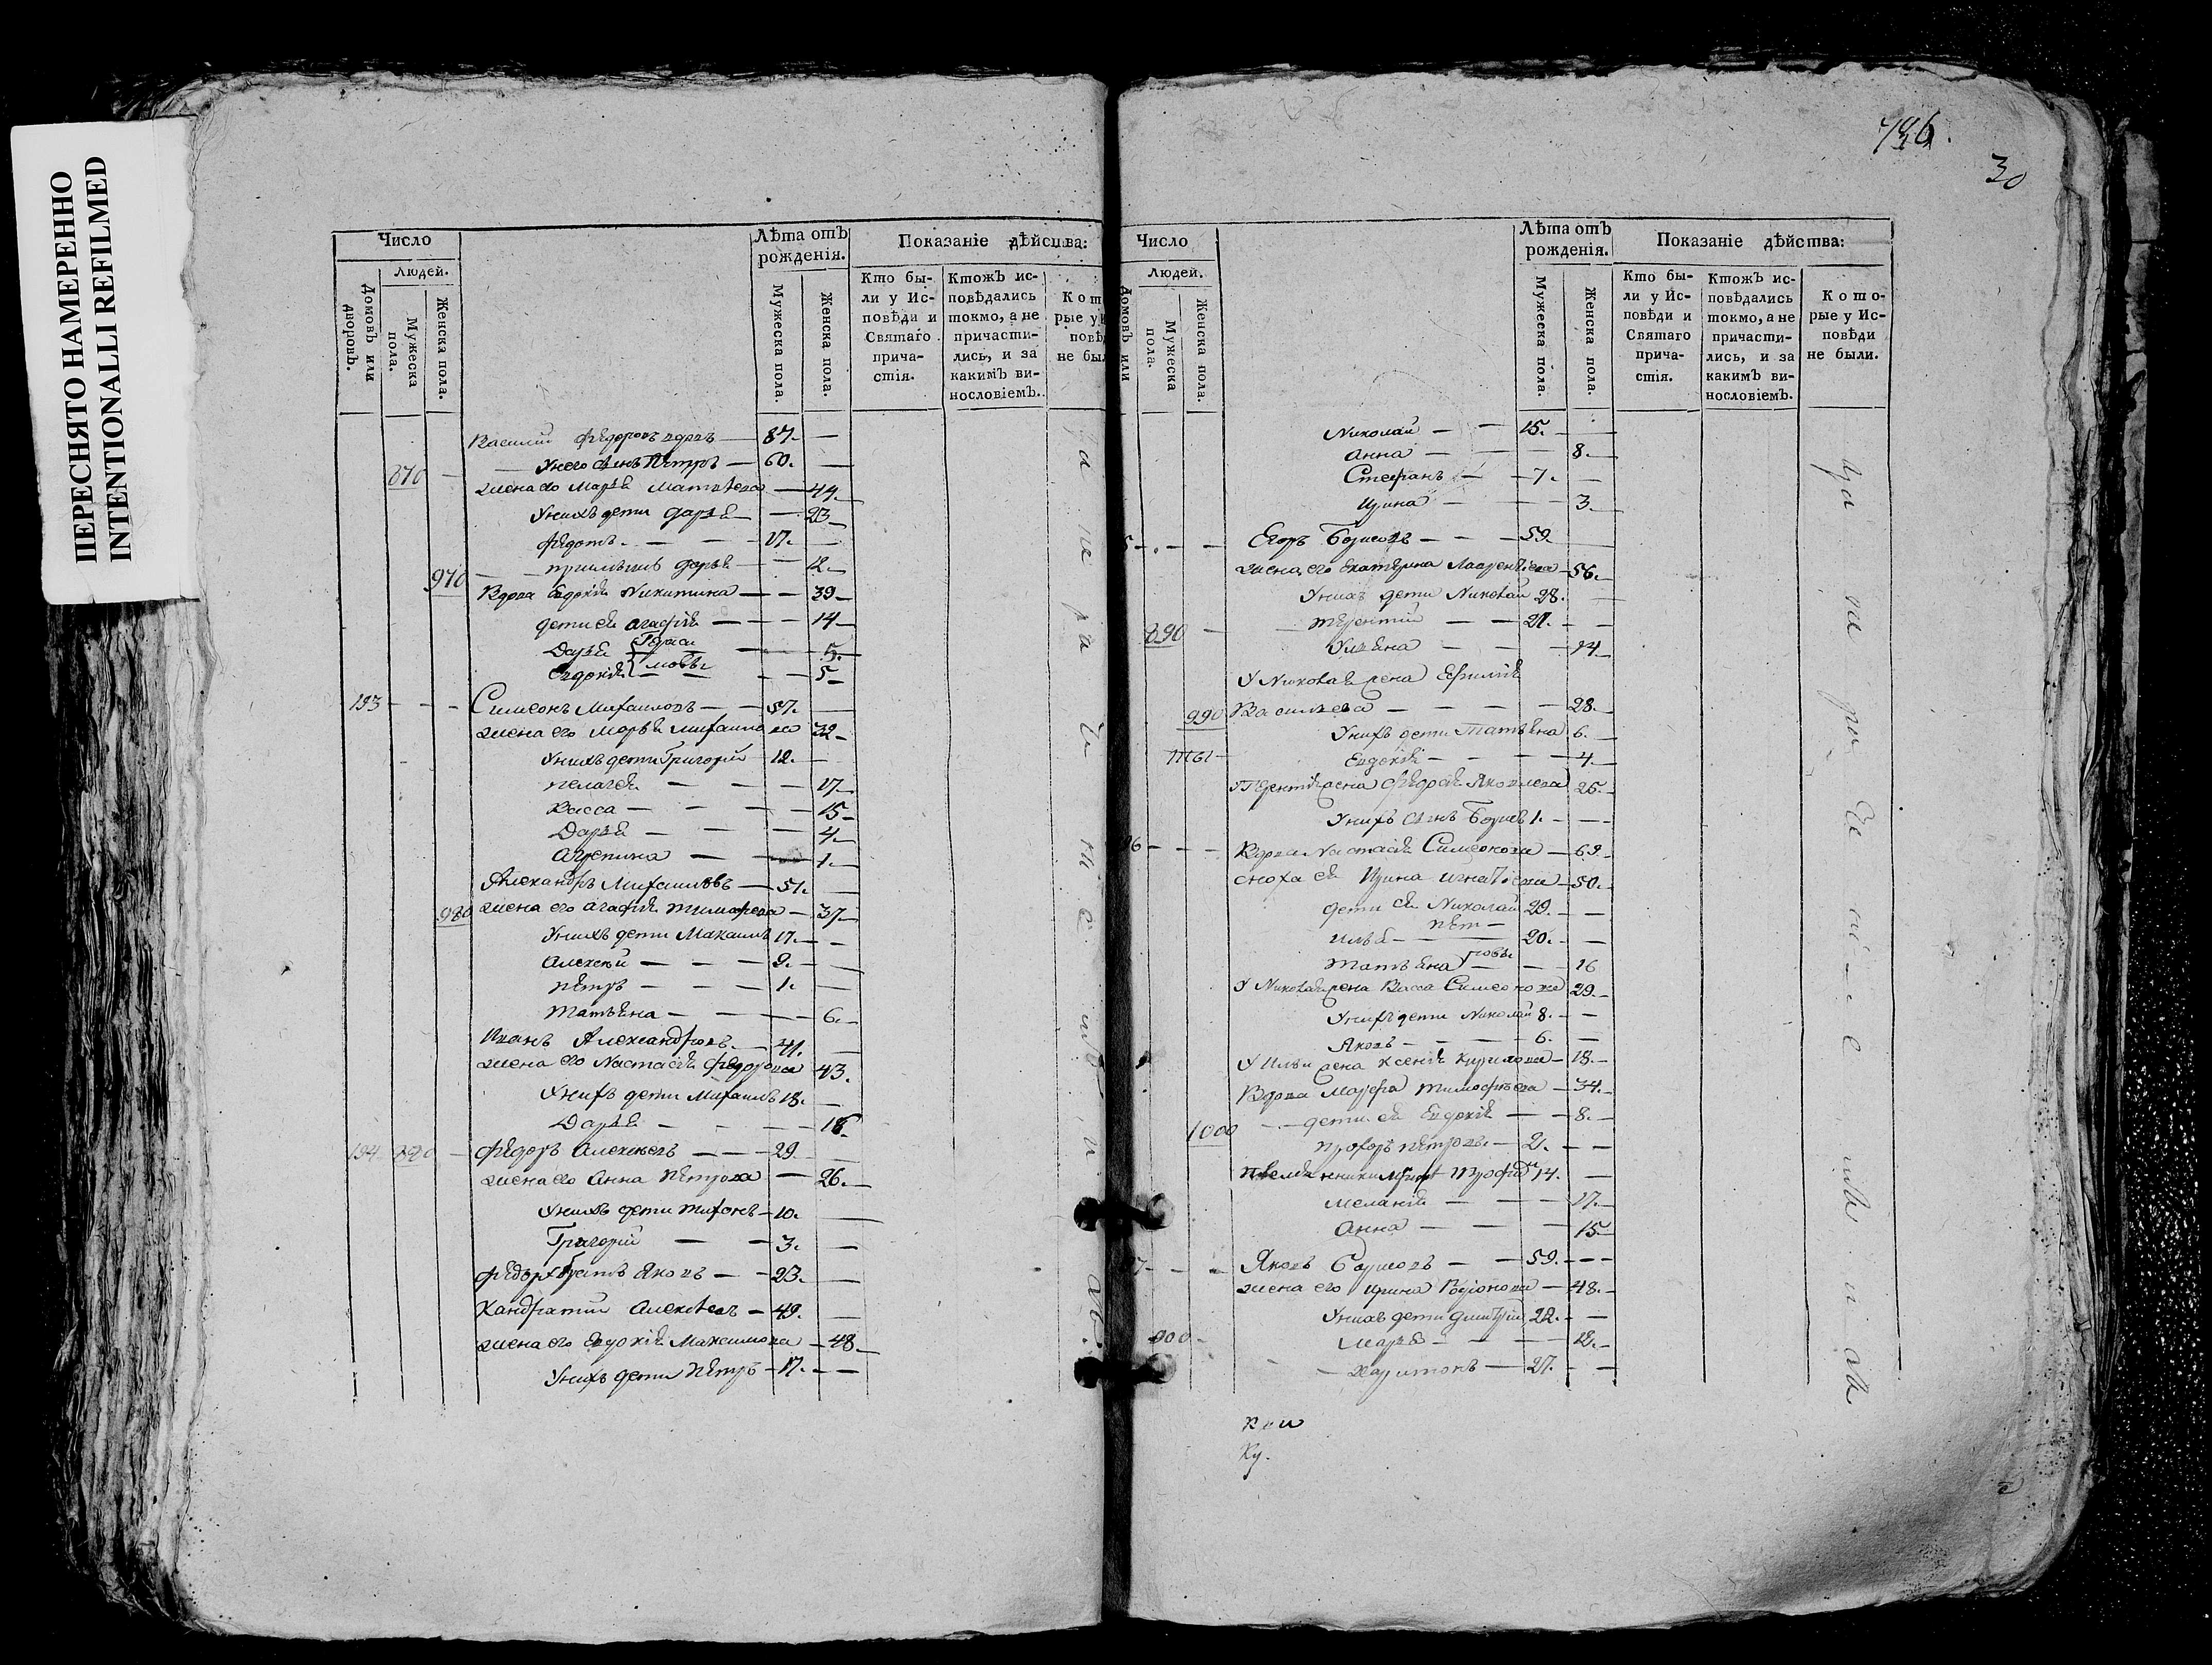 ПЕРЕСНЯТО НАМЕРЕННО
INTENTIONALLI REFILMED
Число
Людей.
Домовъ или дворовъ.
Мужеска пола.
Женска пола.
Лѣта отъ рожденія.
Мужеска пола.
Женска пола.
Показаніе дѣйства:
Кто бы-
ли у Ис-
повѣди и
Святаго
прича-
стія.
Ктожъ ис-
повѣдались
токмо, а не
причасти-
лись, и за
какимъ ви-
нословіемъ.
Кот
рые у
повѣ
не бы
Василий Федоровъ вдовъ — 87. —
У него сынъ Петръ — 60. —
870 — жена его Марья Матвеева — 44. —
У нихъ дети Дарья — 23 —
Федотъ — 17. —
Дарья — 12. —
970 — Вдова Евдокия Никитина — 39 —
дети ея Агафия — 14 —
Дарья — 5. —
Евдокия — 5 —
193 — Симеонъ Михаиловъ — 57. —
жена его Марья Михаилова 32 —
У нихъ дети Григорий 12. —
Пелагея — 17 —
Васса — 15 —
Дарья — 4 —
Агрепина — 1. —
Александръ Михаиловъ — 51. —
980 жена его Агафия Тимофеева — 37 —
У нихъ дети Максимъ 17. —
Алексей — 9. —
Петръ — 1. —
Татьяна — 6. —
Иванъ Александровъ — 41. —
жена его Настасия Федорова 43.
У нихъ дети Михаилъ 18. —
Дарья — 16.
194 880 — Федоръ Алексеевъ — 29. —
жена его Анна Петрова — 26. —
У нихъ дети Тихонъ — 10. —
Григорий — 3. —
братъ Яковъ — 23. —
Кандратий Алексеевъ — 49. —
жена его Евдокия Максимова — 48 —
У нихъ дети Петръ — 17. —
30
Число
Людей.
Домовъ или
Мужеска пола.
Женска пола.
Лѣта отъ рожденія.
Мужеска пола.
Женска пола.
Показаніе дѣйства:
Кто бы-
ли у Ис-
повѣди и
Святаго
прича-
стія.
Ктожъ ис-
повѣдались
токмо, а не
причасти-
лись, и за
какимъ ви-
нословіемъ.
Кото-
рые у Ис-
повѣди
не были.
Николай — 15. —
Анна — 8. —
Стефанъ — 7. —
Ирина — 3 —
5 — Егоръ Борисовъ — 59. —
жена его Екатерина Лаврентиева — 56. —
У нихъ дети Николай 28. —
890 — Терентий — 21. —
Ульяна — 14 —
У Николая жена Ефимия
990 Васильева — 28. —
У нихъ дети Татьяна 6. —
Евдокия — 4 —
Терентия жена Федосия Яковлева 25. —
У нихъ сынъ Борисъ 1. —
96 — Вдова Настасия Симеонова — 69. —
сноха ея Ирина Игнатиева — 50. —
дети ея Николай 29. —
Илья — 20. —
Татьяна — 16
У Николая жена Васса Симеонова 29. —
У нихъ дети Николай 8. —
Яковъ — 6. —
У Ильи жена Ксения Кирилова — 18. —
Вдова Марфа Тимофеева — 34. —
1000 — дети ея Евдокия — 8. —
Прохоръ Петровъ — 2. —
14. —
Мелания — 17. —
Анна — 15 —
7 — Яковъ Борисовъ — 59. —
жена его Ирина — 48. —
У нихъ дети Дмитрий 22. —
900 — Марья — 12. —
Харитонъ — 27. —